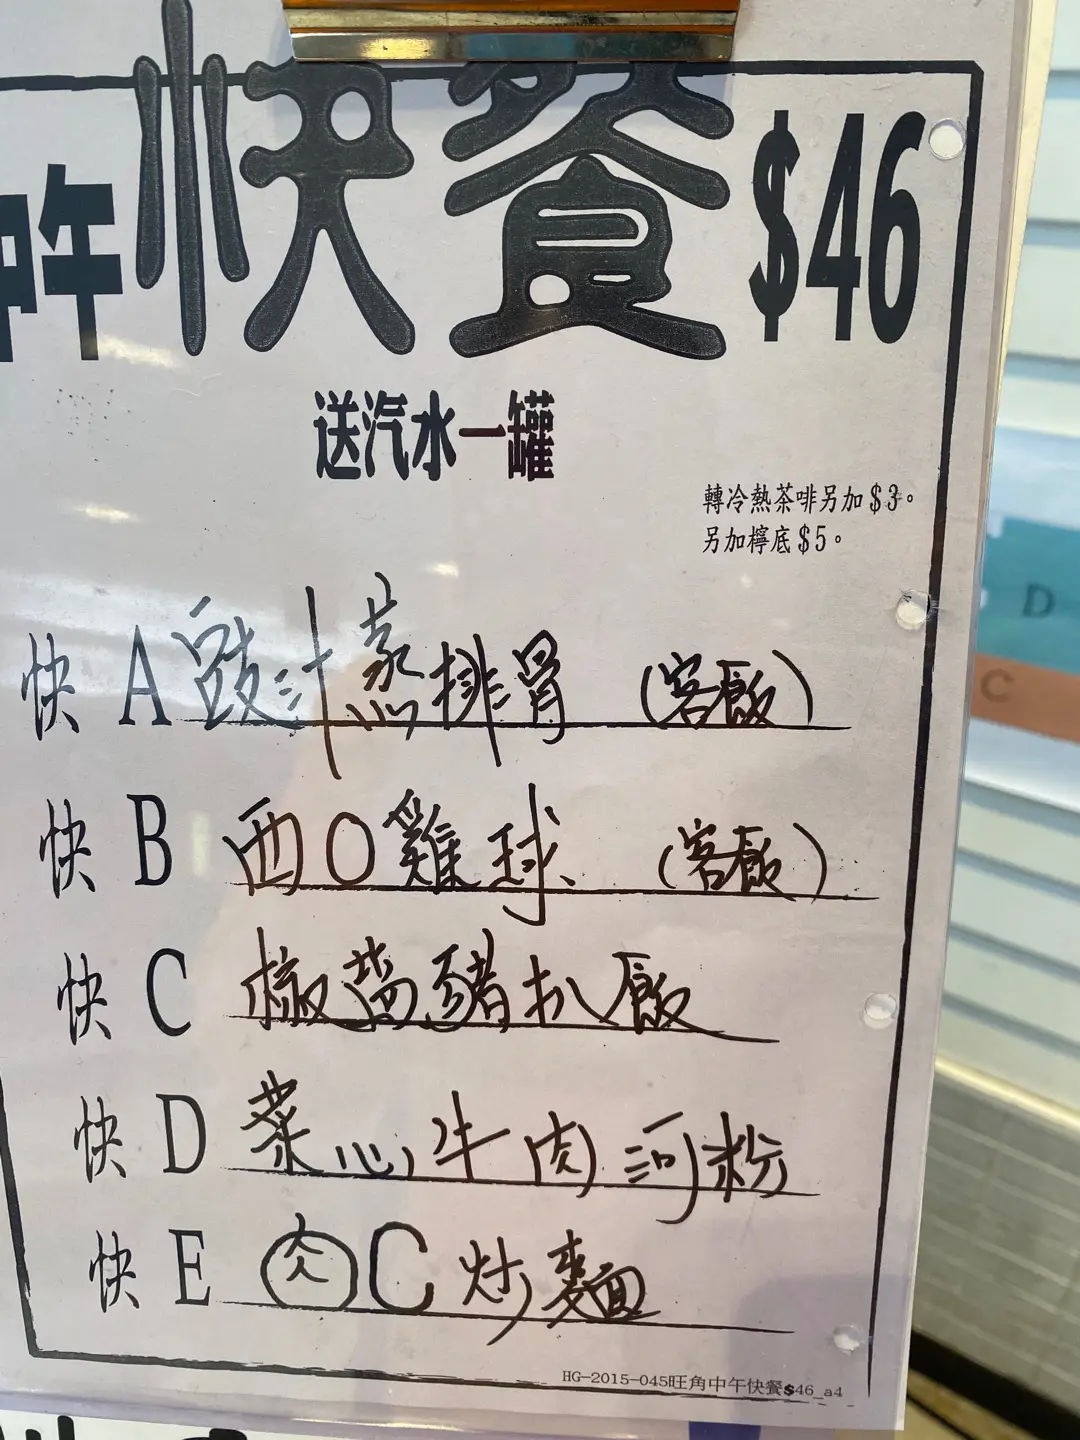 中午快餐 $46
送汽水一罐
轉冷熱茶啡另加$3。
另加檸底$5。
快 A 豉汁蒸排骨 (客飯)
快 B 西〇雞球 (客飯)
快 C 椒醬豬扒飯
快 D 菜心牛肉河粉
快 E 肉C炒麵
HG-2015-045旺角中午快餐$46_a4